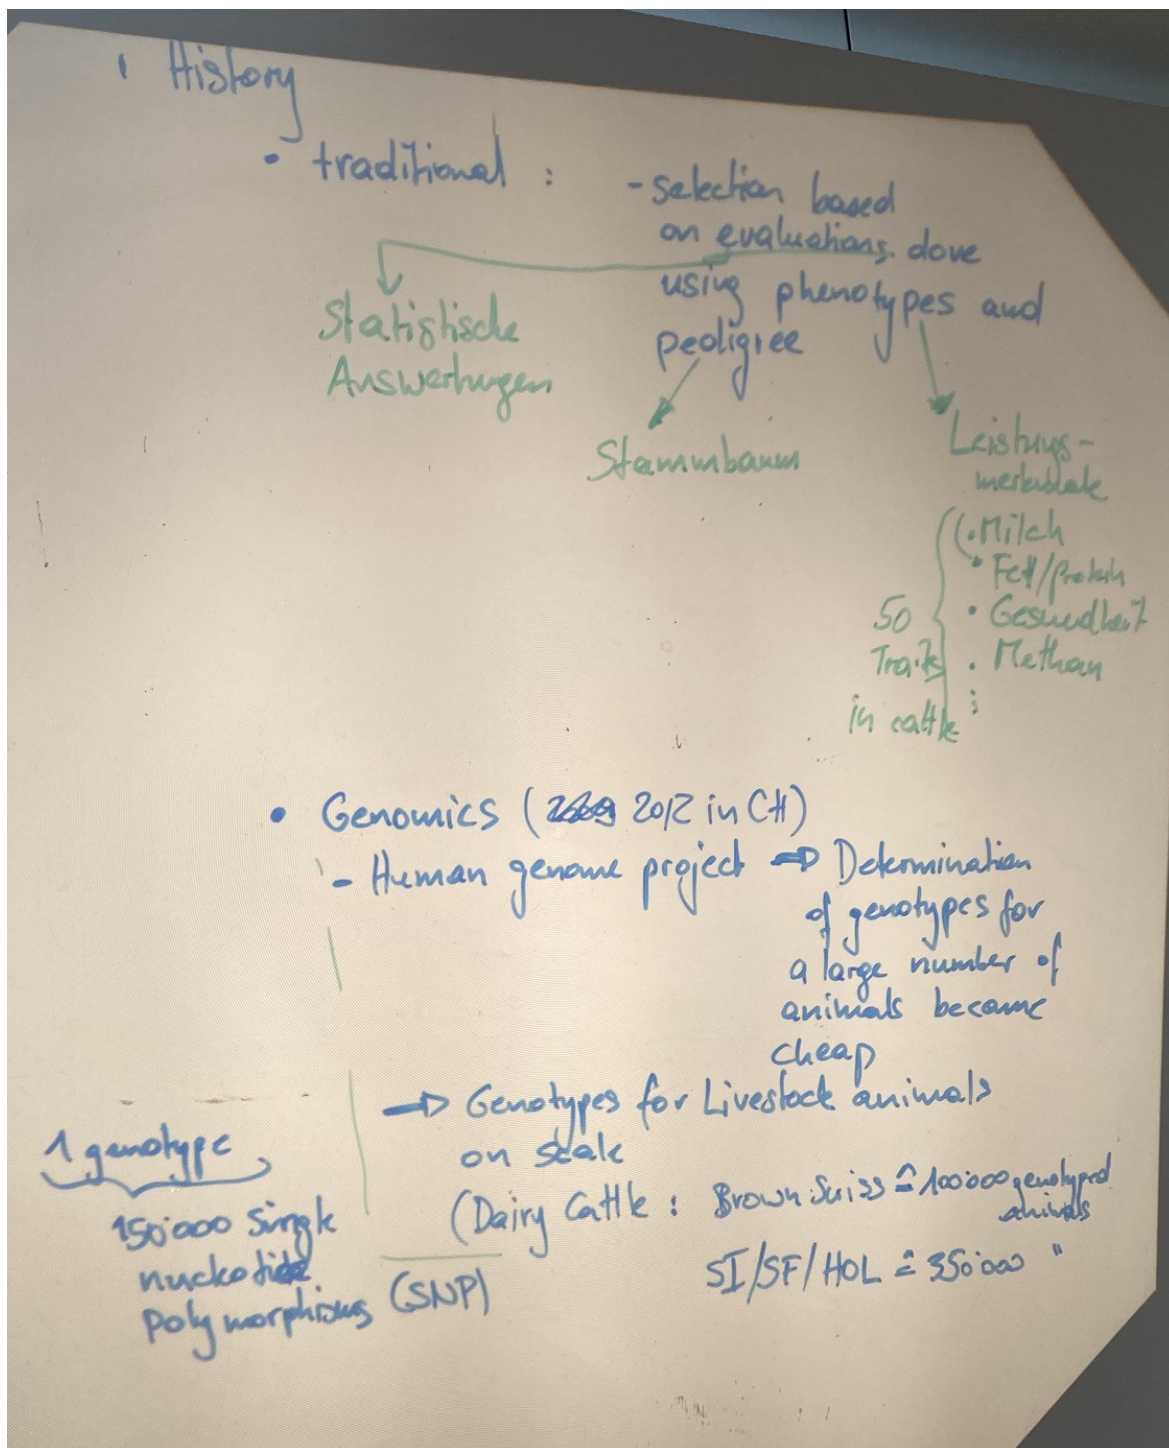 History
• traditional : - selection based
on evaluations done
using phenotypes and
pedigree
Statistische
Auswertungen
Stammbaum
Leistungs-
merkmale
• Milch
• Fett/Protein
• Gesundheit
• Methan
⋮
50
Traits
in cattle
• Genomics ( 2012 in CH)
- Human genome project ⇒ Determination
of genotypes for
a large number of
animals became
cheap
⇒ Genotypes for Livestock animals
on scale
(Dairy Cattle : Brown Swiss ≙ 100'000 genotyped
animals
SI/SF/HOL ≙ 350'000 "
1 genotype
150'000 Single
nucleotide
polymorphisms (SNP)